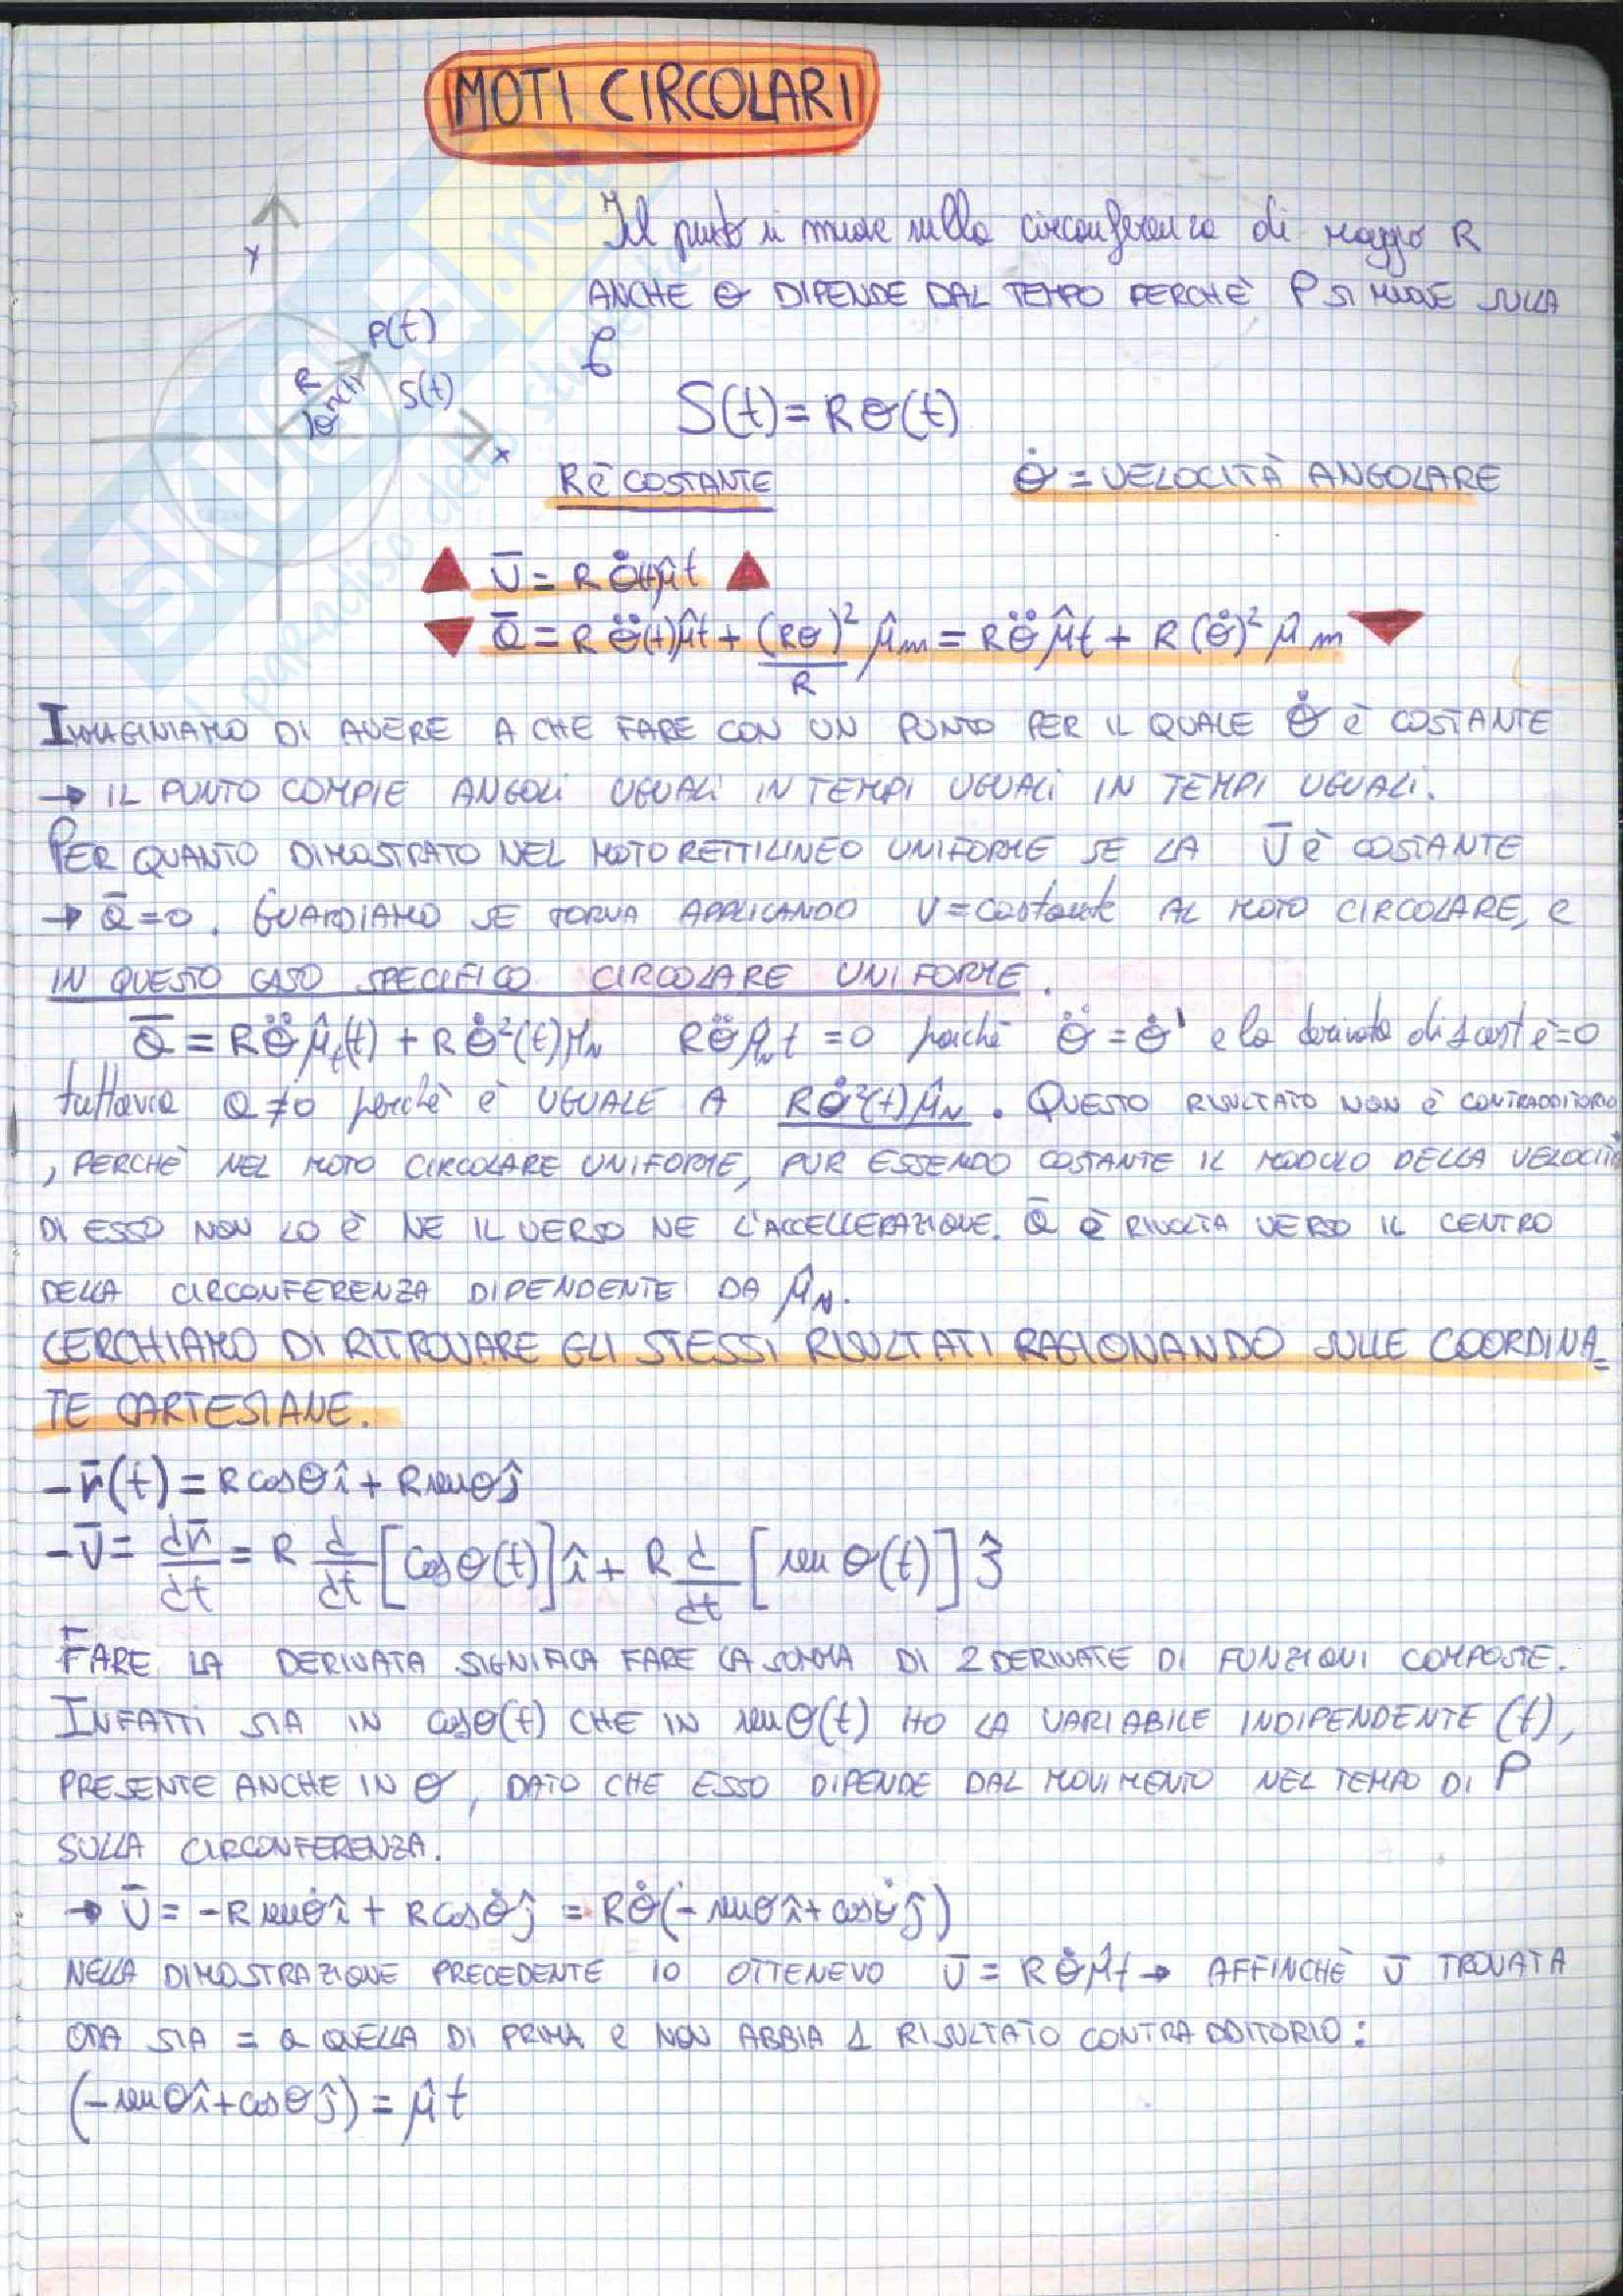 MOTI CIRCOLARI
Il punto si muove sulla circonferenza di raggio R
ANCHE θ DIPENDE DAL TEMPO PERCHÈ P SI MUOVE SULLA
C
y
P(t)
R
θ(t)
S(t)
x
S(t) = Rθ(t)
R È COSTANTE
θ̇ = VELOCITÀ ANGOLARE
v̄ = R θ̇(t) μ̂t
ā = R θ̈(t) μ̂t + (Rθ)²/R μ̂m = R θ̈ μ̂t + R (θ̇)² μ̂m
IMMAGINIAMO DI AVERE A CHE FARE CON UN PUNTO PER IL QUALE θ̇ è COSTANTE
→ IL PUNTO COMPIE ANGOLI UGUALI IN TEMPI UGUALI IN TEMPI UGUALI.
PER QUANTO DIMOSTRATO NEL MOTO RETTILINEO UNIFORME SE LA v̄ è COSTANTE
→ ā = 0. GUARDIAMO SE TORNA APPLICANDO V = costante AL MOTO CIRCOLARE, e
IN QUESTO CASO SPECIFICO CIRCOLARE UNIFORME.
ā = Rθ̈ μ̂t(t) + Rθ̇²(t) μN Rθ̈ μ̂t = 0 poichè θ̈ = θ̇' e la derivata di 1 cost è = 0
tuttavia a ≠ 0 perchè è UGUALE A Rθ̇²(t) μ̂N. QUESTO RISULTATO NON è CONTRADDITORIO
, PERCHÈ NEL MOTO CIRCOLARE UNIFORME, PUR ESSENDO COSTANTE IL MODULO DELLA VELOCITÀ
DI ESSO NON LO È NE IL VERSO NE L'ACCELLERAZIONE. ā è RIVOLTA VERSO IL CENTRO
DELLA CIRCONFERENZA DIPENDENTE DA μ̂N.
CERCHIAMO DI RITROVARE GLI STESSI RISULTATI RAGIONANDO SULLE COORDINA=
TE CARTESIANE.
- r̄(t) = R cosθ î + R senθ ĵ
- v̄ = dr̄/dt = R d/dt [cos θ(t)] î + R d/dt [sen θ(t)] ĵ
FARE LA DERIVATA SIGNIFICA FARE LA SOMMA DI 2 DERIVATE DI FUNZIONI COMPOSTE.
INFATTI SIA IN cosθ(t) CHE IN senθ(t) HO LA VARIABILE INDIPENDENTE (t),
PRESENTE ANCHE IN θ, DATO CHE ESSO DIPENDE DAL MOVIMENTO NEL TEMPO DI P
SULLA CIRCONFERENZA.
→ v̄ = -R senθ̇ î + R cosθ̇ ĵ = Rθ̇(- senθ î + cosθ ĵ)
NELLA DIMOSTRAZIONE PRECEDENTE IO OTTENEVO v̄ = R θ̇ μ̂t → AFFINCHÈ v̄ TROVATA
ORA SIA = a QUELLA DI PRIMA e NON ABBIA 1 RISULTATO CONTRADDITORIO:
(-senθ î + cosθ ĵ) = μ̂t
SKUOLA.net
il paradiso dello studente